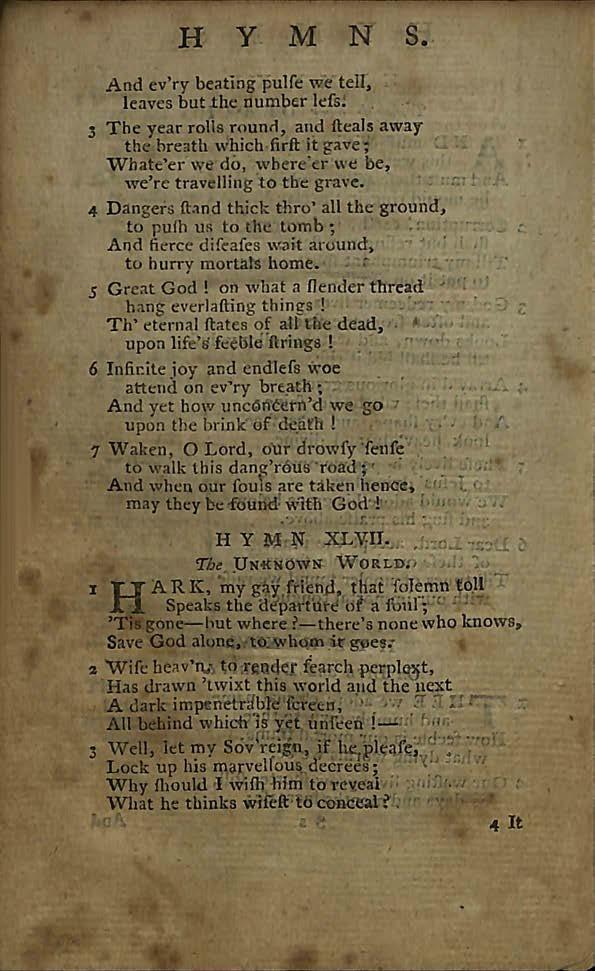 HYMNS.
And ev'ry beating pulſe we tell,
leaves but the number leſs.
3 The year rolls round, and ſteals away
the breath which firſt it gave;
Whate'er we do, where'er we be,
we're travelling to the grave.
4 Dangers ſtand thick thro' all the ground,
to puſh us to the tomb;
And fierce diſeaſes wait around,
to hurry mortals home.
5 Great God! on what a ſlender thread
hang everlaſting things!
Th' eternal ſtates of all the dead,
upon life's feeble ſtrings!
6 Infinite joy and endleſs woe
attend on ev'ry breath;
And yet how unconcern'd we go
upon the brink of death!
7 Waken, O Lord, our drowſy ſenſe
to walk this dang'rous road;
And when our ſouls are taken hence,
may they be found with God!
HYMN XLVII.
The UNKNOWN WORLD.
1 HARK, my gay friend, that ſolemn toll
Speaks the departure of a ſoul;
'Tis gone—but where?—there's none who knows,
Save God alone, to whom it goes.
2 Wiſe heav'n, to render ſearch perplext,
Has drawn 'twixt this world and the next
A dark impenetrable ſcreen,
All behind which is yet unſeen!—
3 Well, let my Sov'reign, if he pleaſe,
Lock up his marvellous decrees;
Why ſhould I wiſh him to reveal
What he thinks wiſeſt to conceal?
4 It